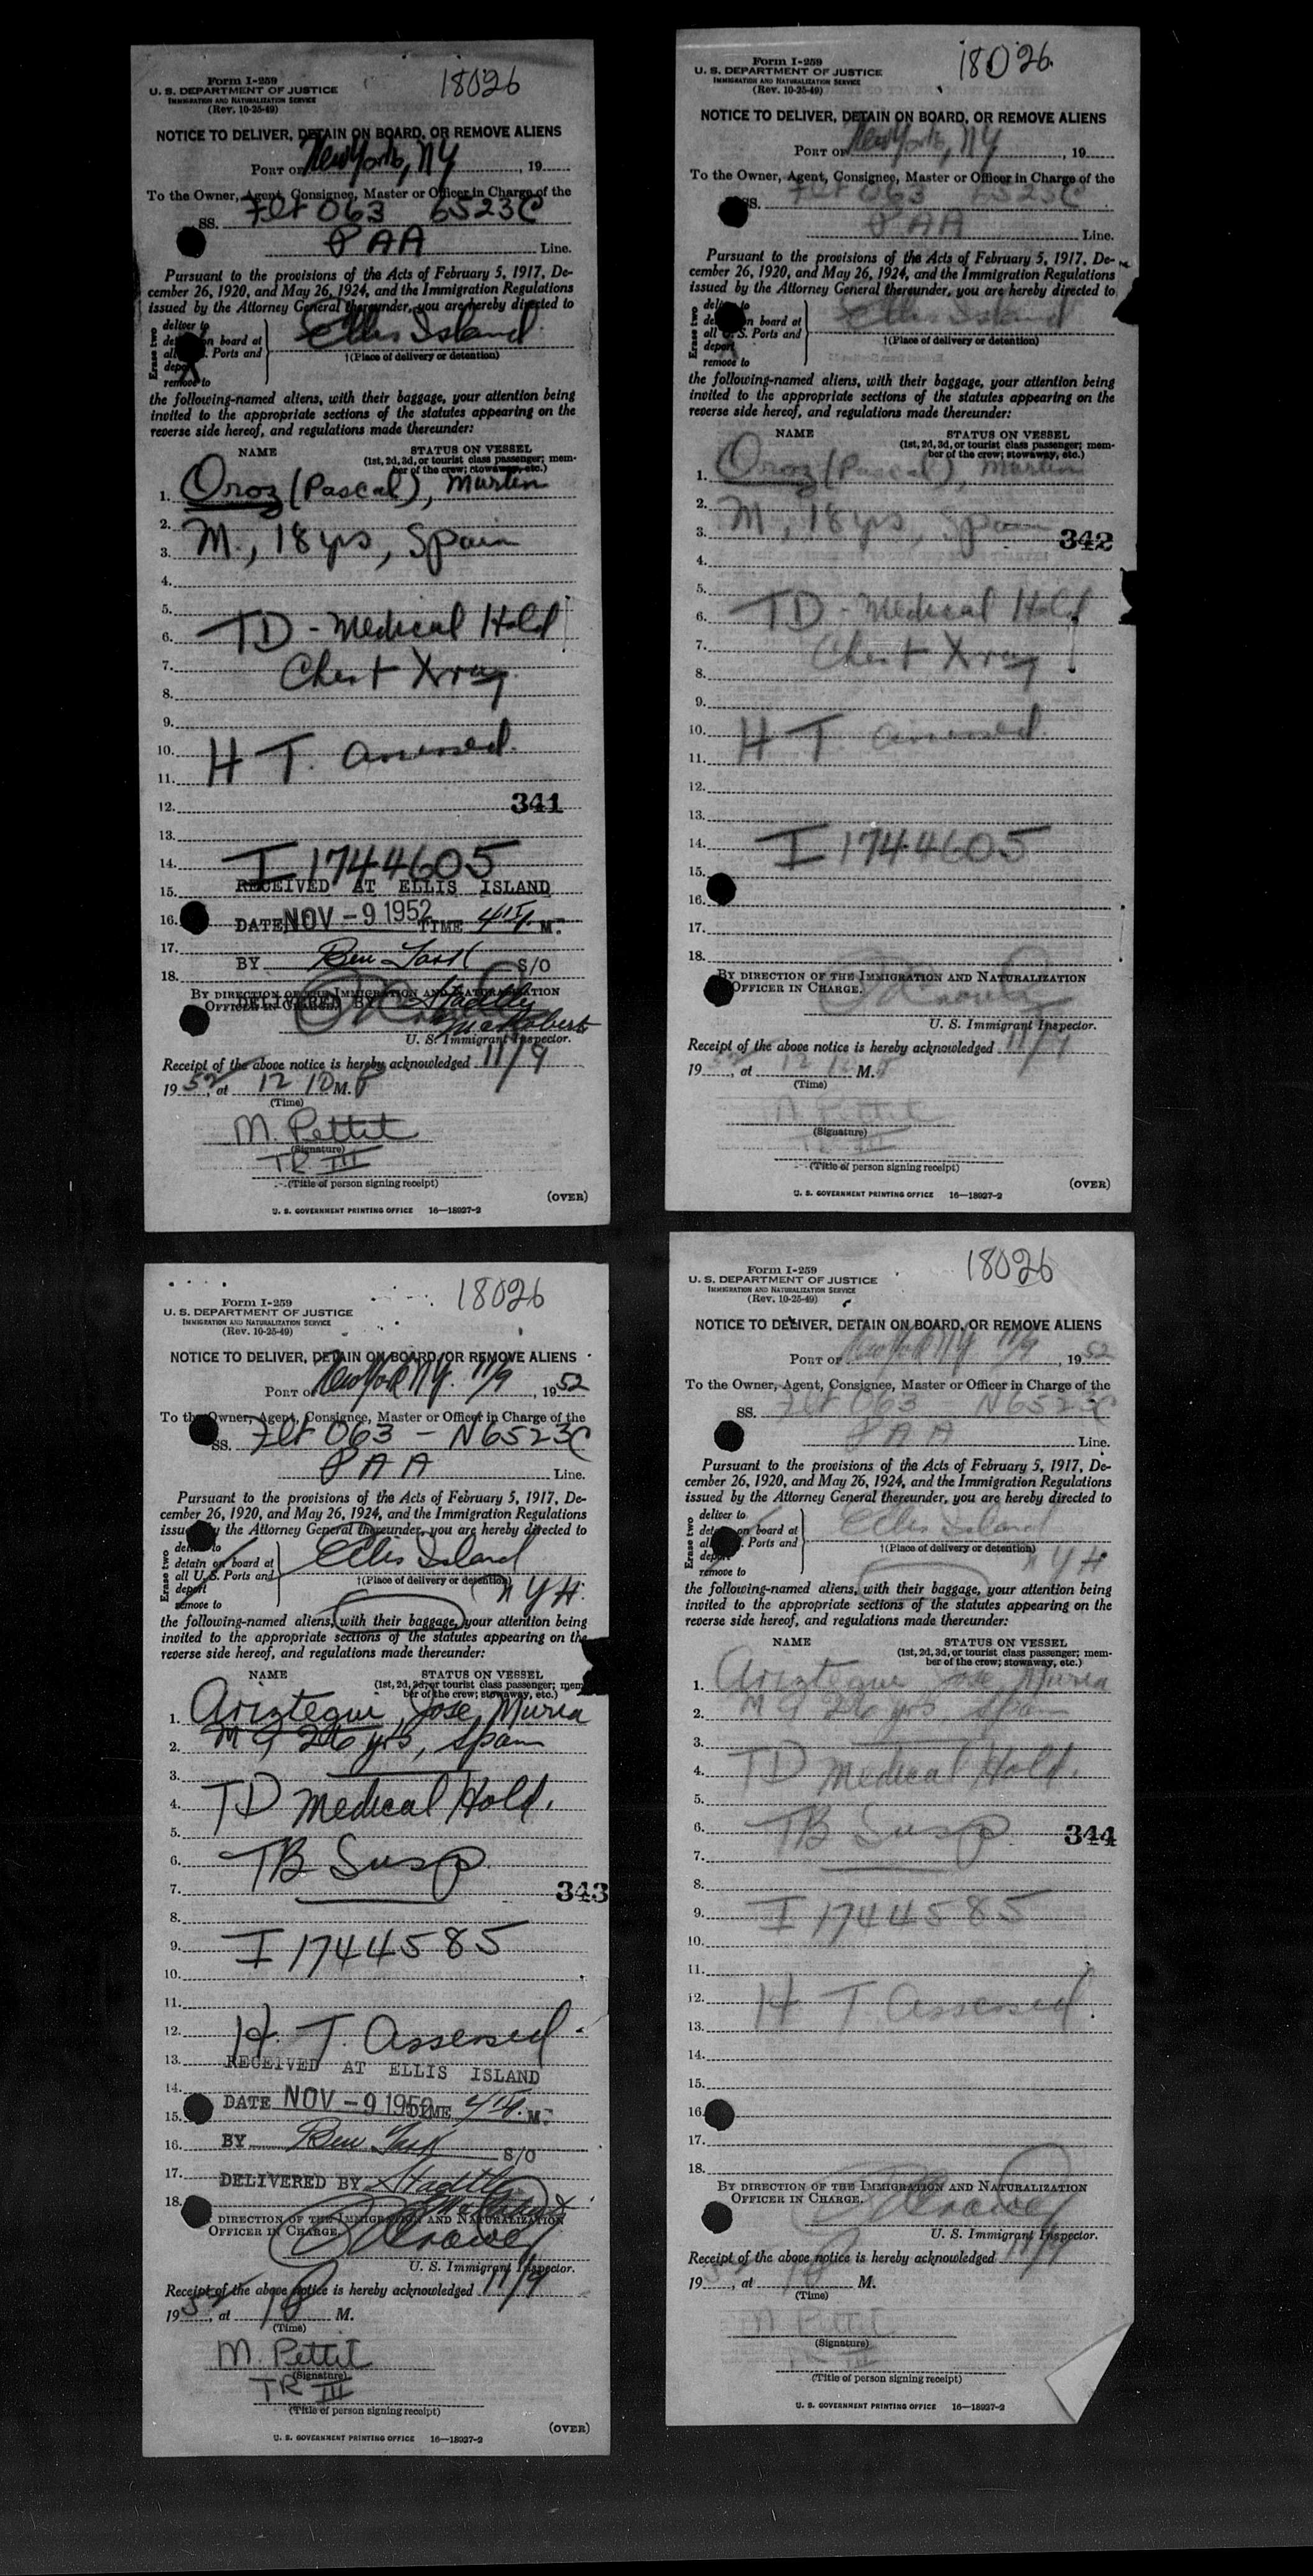 Form I-259
U. S. DEPARTMENT OF JUSTICE
IMMIGRATION AND NATURALIZATION SERVICE
(Rev. 10-25-49)
18026
NOTICE TO DELIVER, DETAIN ON BOARD, OR REMOVE ALIENS
PORT OF New York, NY, 19
To the Owner, Agent, Consignee, Master or Officer in Charge of the
SS. Flt 063 6523C
PAA Line.
Pursuant to the provisions of the Acts of February 5, 1917, De-
cember 26, 1920, and May 26, 1924, and the Immigration Regulations
issued by the Attorney General thereunder, you are hereby directed to
Erase two
deliver to
on board at
all Ports and
remove to
Ellis Island
†(Place of delivery or detention)
the following-named aliens, with their baggage, your attention being
invited to the appropriate sections of the statutes appearing on the
reverse side hereof, and regulations made thereunder:
NAME STATUS ON VESSEL
(1st, 2d, 3d, or tourist class passenger; mem-
ber of the crew; stowaway, etc.)
1. Oroz (Pascal), Martin
2.
3. M., 18 yrs, Spain
4.
5.
6. TD - Medical Hold
7. Chest Xray
8.
9.
10. H T. assessed.
11.
12. 341
13.
14. I 1744605
15. RECEIVED AT ELLIS ISLAND
16. DATE NOV - 9 1952 TIME M.
17. BY Ben S/O
18.
BY DIRECTION OF THE IMMIGRATION AND NATURALIZATION
OFFICER IN CHARGE.
DELIVERED BY
U. S. Immigrant Inspector.
Receipt of the above notice is hereby acknowledged 11/9
1952, at 12 10 M. P
(Time)
M. Pettit
(Signature)
TR III
(Title of person signing receipt)
(OVER)
U. S. GOVERNMENT PRINTING OFFICE 16—18927-2
Form I-259
U. S. DEPARTMENT OF JUSTICE
IMMIGRATION AND NATURALIZATION SERVICE
(Rev. 10-25-49)
18026
NOTICE TO DELIVER, DETAIN ON BOARD, OR REMOVE ALIENS
PORT OF New York, NY, 19
To the Owner, Agent, Consignee, Master or Officer in Charge of the
SS. Flt 063 6523C
PAA Line.
Pursuant to the provisions of the Acts of February 5, 1917, De-
cember 26, 1920, and May 26, 1924, and the Immigration Regulations
issued by the Attorney General thereunder, you are hereby directed to
Erase two
deliver to
on board at
all U. S. Ports and
deport
remove to
Ellis Island
†(Place of delivery or detention)
the following-named aliens, with their baggage, your attention being
invited to the appropriate sections of the statutes appearing on the
reverse side hereof, and regulations made thereunder:
NAME STATUS ON VESSEL
(1st, 2d, 3d, or tourist class passenger; mem-
ber of the crew; stowaway, etc.)
1. Oroz (Pascal), Martin
2.
3. M, 18 yrs, Spain 342
4.
5.
6. TD - Medical Hold
7. Chest Xray
8.
9.
10. H T. assessed.
11.
12.
13.
14. I 1744605
15.
16.
17.
18.
BY DIRECTION OF THE IMMIGRATION AND NATURALIZATION
OFFICER IN CHARGE.
U. S. Immigrant Inspector.
Receipt of the above notice is hereby acknowledged 11/9
1952, at 12 10 M.
(Time)
M Pettit
(Signature)
TR III
(Title of person signing receipt)
(OVER)
U. S. GOVERNMENT PRINTING OFFICE 16—18927-2
Form I-259
U. S. DEPARTMENT OF JUSTICE
IMMIGRATION AND NATURALIZATION SERVICE
(Rev. 10-25-49)
18026
NOTICE TO DELIVER, DETAIN ON BOARD, OR REMOVE ALIENS
PORT OF New York NY. 11/9, 1952
To the Owner, Agent, Consignee, Master or Officer in Charge of the
SS. Flt 063 - N6523C
PAA Line.
Pursuant to the provisions of the Acts of February 5, 1917, De-
cember 26, 1920, and May 26, 1924, and the Immigration Regulations
issued by the Attorney General thereunder, you are hereby directed to
Erase two
deliver to
detain on board at
all U. S. Ports and
deport
remove to
Ellis Island
†(Place of delivery or detention)
N Y H.
the following-named aliens, with their baggage, your attention being
invited to the appropriate sections of the statutes appearing on the
reverse side hereof, and regulations made thereunder:
NAME STATUS ON VESSEL
(1st, 2d, 3d, or tourist class passenger; mem-
ber of the crew; stowaway, etc.)
1. Ariztegui, Jose Maria
2. M 26 yrs, Spain
3.
4. TD Medical Hold.
5.
6. TB Susp.
7. 343
8.
9. I 1744585
10.
11.
12. H. T. Assessed
13. RECEIVED AT ELLIS ISLAND
14.
15. DATE NOV - 9 1952 TIME M.
16. BY Ben S/O
17. DELIVERED BY
18.
DIRECTION OF THE IMMIGRATION AND NATURALIZATION
OFFICER IN CHARGE.
U. S. Immigrant Inspector.
Receipt of the above notice is hereby acknowledged 11/9
1952, at 1 P M.
(Time)
M. Pettit
(Signature)
TR III
(Title of person signing receipt)
(OVER)
U. S. GOVERNMENT PRINTING OFFICE 16—18927-2
Form I-259
U. S. DEPARTMENT OF JUSTICE
IMMIGRATION AND NATURALIZATION SERVICE
(Rev. 10-25-49)
18026
NOTICE TO DELIVER, DETAIN ON BOARD, OR REMOVE ALIENS
PORT OF New York NY 11/9, 1952
To the Owner, Agent, Consignee, Master or Officer in Charge of the
SS. Flt 063 N6523C
PAA Line.
Pursuant to the provisions of the Acts of February 5, 1917, De-
cember 26, 1920, and May 26, 1924, and the Immigration Regulations
issued by the Attorney General thereunder, you are hereby directed to
Erase two
deliver to
on board at
Ports and
deport
remove to
Ellis Island
†(Place of delivery or detention)
N Y H.
the following-named aliens, with their baggage, your attention being
invited to the appropriate sections of the statutes appearing on the
reverse side hereof, and regulations made thereunder:
NAME STATUS ON VESSEL
(1st, 2d, 3d, or tourist class passenger; mem-
ber of the crew; stowaway, etc.)
1. Ariztegui Jose Maria
2. M 26 yrs, Spain
3.
4. TD Medical Hold.
5.
6. TB Susp 344
7.
8.
9. I 1744585
10.
11.
12. H T Assessed
13.
14.
15.
16.
17.
18.
BY DIRECTION OF THE IMMIGRATION AND NATURALIZATION
OFFICER IN CHARGE.
U. S. Immigrant Inspector.
Receipt of the above notice is hereby acknowledged 11/9
1952, at 1 P M.
(Time)
M Pettit
(Signature)
TR III
(Title of person signing receipt)
U. S. GOVERNMENT PRINTING OFFICE 16—18927-2